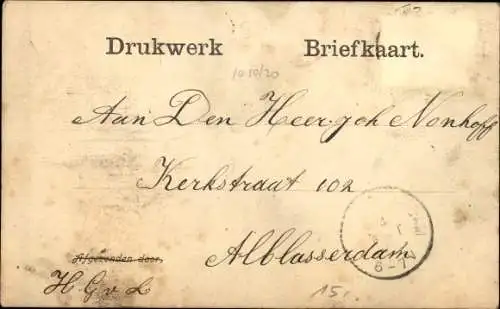 Drukwerk Briefkaart.
10 10/20
Aan Den Heer Joh Nonhoff
Kerkstraat 102
Alblasserdam
6-7
Afgezonden door,
H G v L
15,-